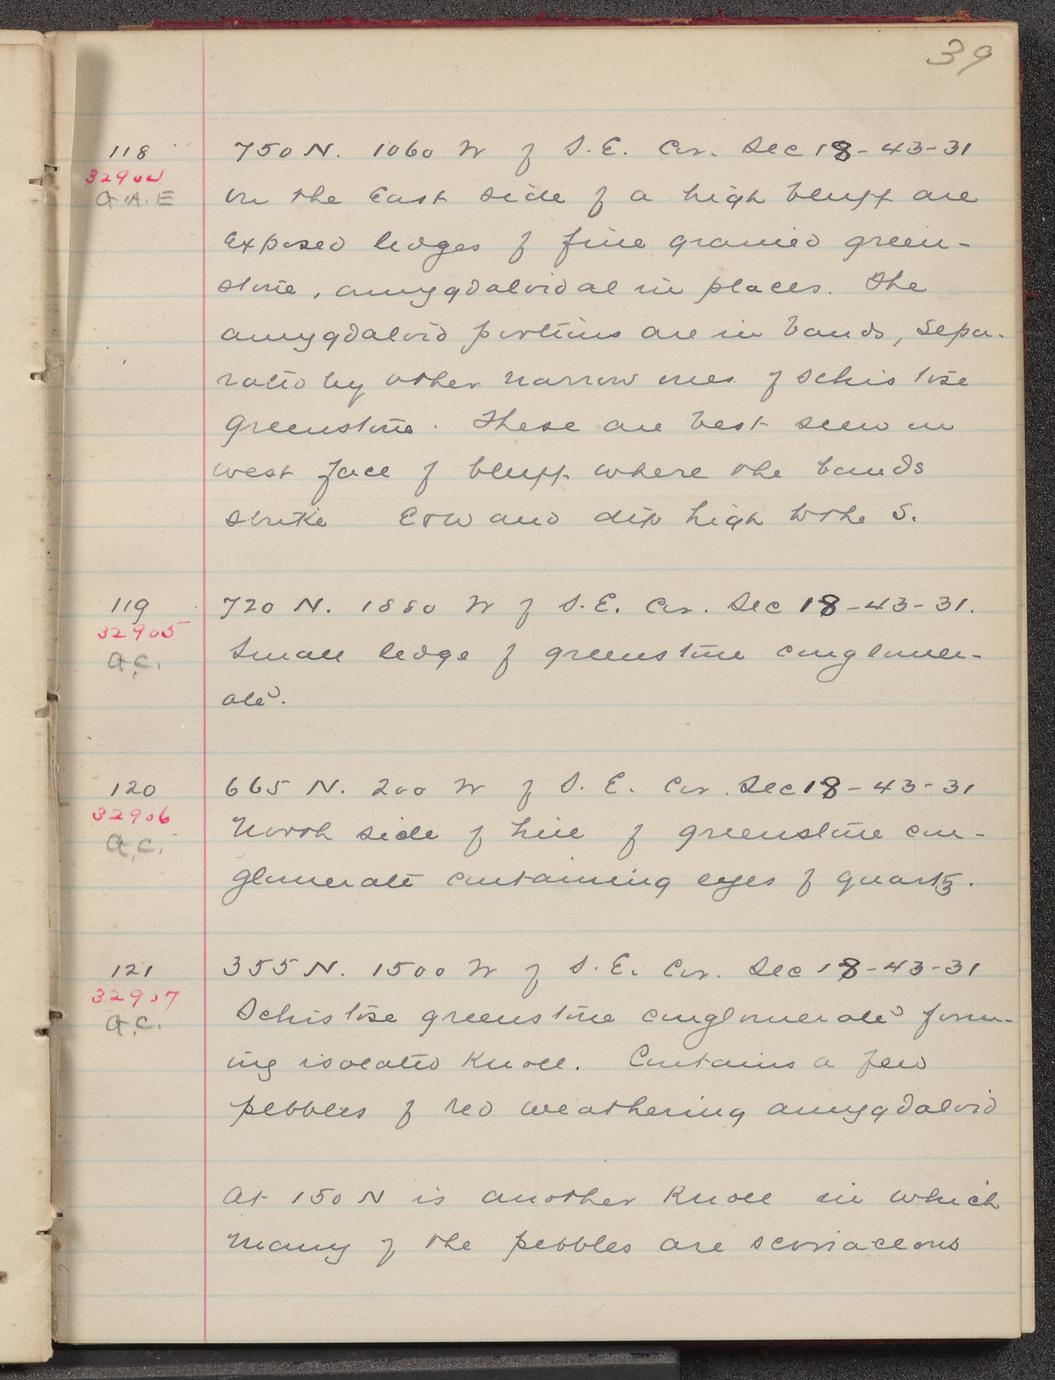 39
118 750 N. 1060 W of S.E. Cor. Sec 18-43-31
32904 On the East side of a high bluff are
G.A.E exposed ledges of fine grained green-
stone, amygdaloidal in places. The
amygdaloid portions are in bands, sepa-
rated by other narrow ones of schistose
greenstone. These are best seen on
west face of bluff where the bands
strike E+W and dip high to the S.
119 720 N. 1880 W of S.E. Cor. Sec 18-43-31.
32905 Small ledge of greenstone conglomer-
G.C. ate.
120 665 N. 200 W of S.E. Cor. Sec 18-43-31
32906 North side of hill of greenstone con-
G.C. glomerate containing eyes of quartz.
121 355 N. 1500 W of S.E. Cor. Sec 18-43-31
32907 Schistose greenstone conglomerate form-
G.C. ing isolated knoll. Contains a few
pebbles of red weathering amygdaloid
At 150 N is another knoll in which
many of the pebbles are scoriaceous